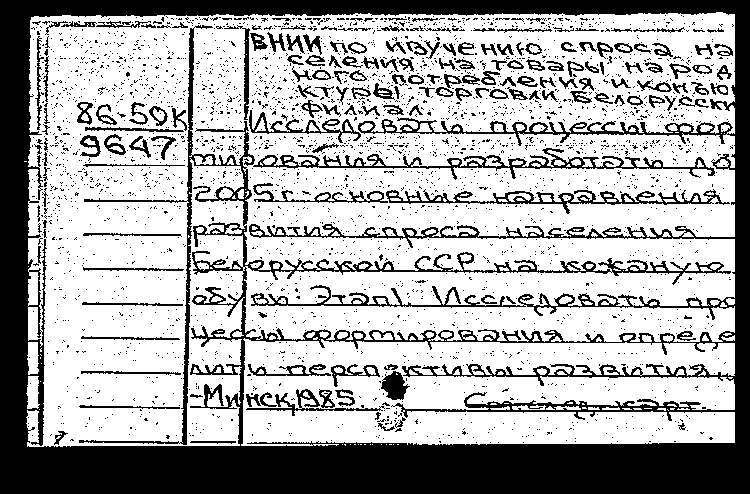 ВНИИ по изучению спроса на
селения на товары народ
ного потребления и конъюн
ктуры торговли Белорусски
филиал.
86-50К
9647
Исследовать процессы фор
мирования и разработать до
2005г. основные направления
развития спроса населения
Белорусской ССР на кожаную
обувь. Этап I. Исследовать про
цессы формирования и опреде
лить перспективы развития...
-Минск, 1985.
См. след. карт.